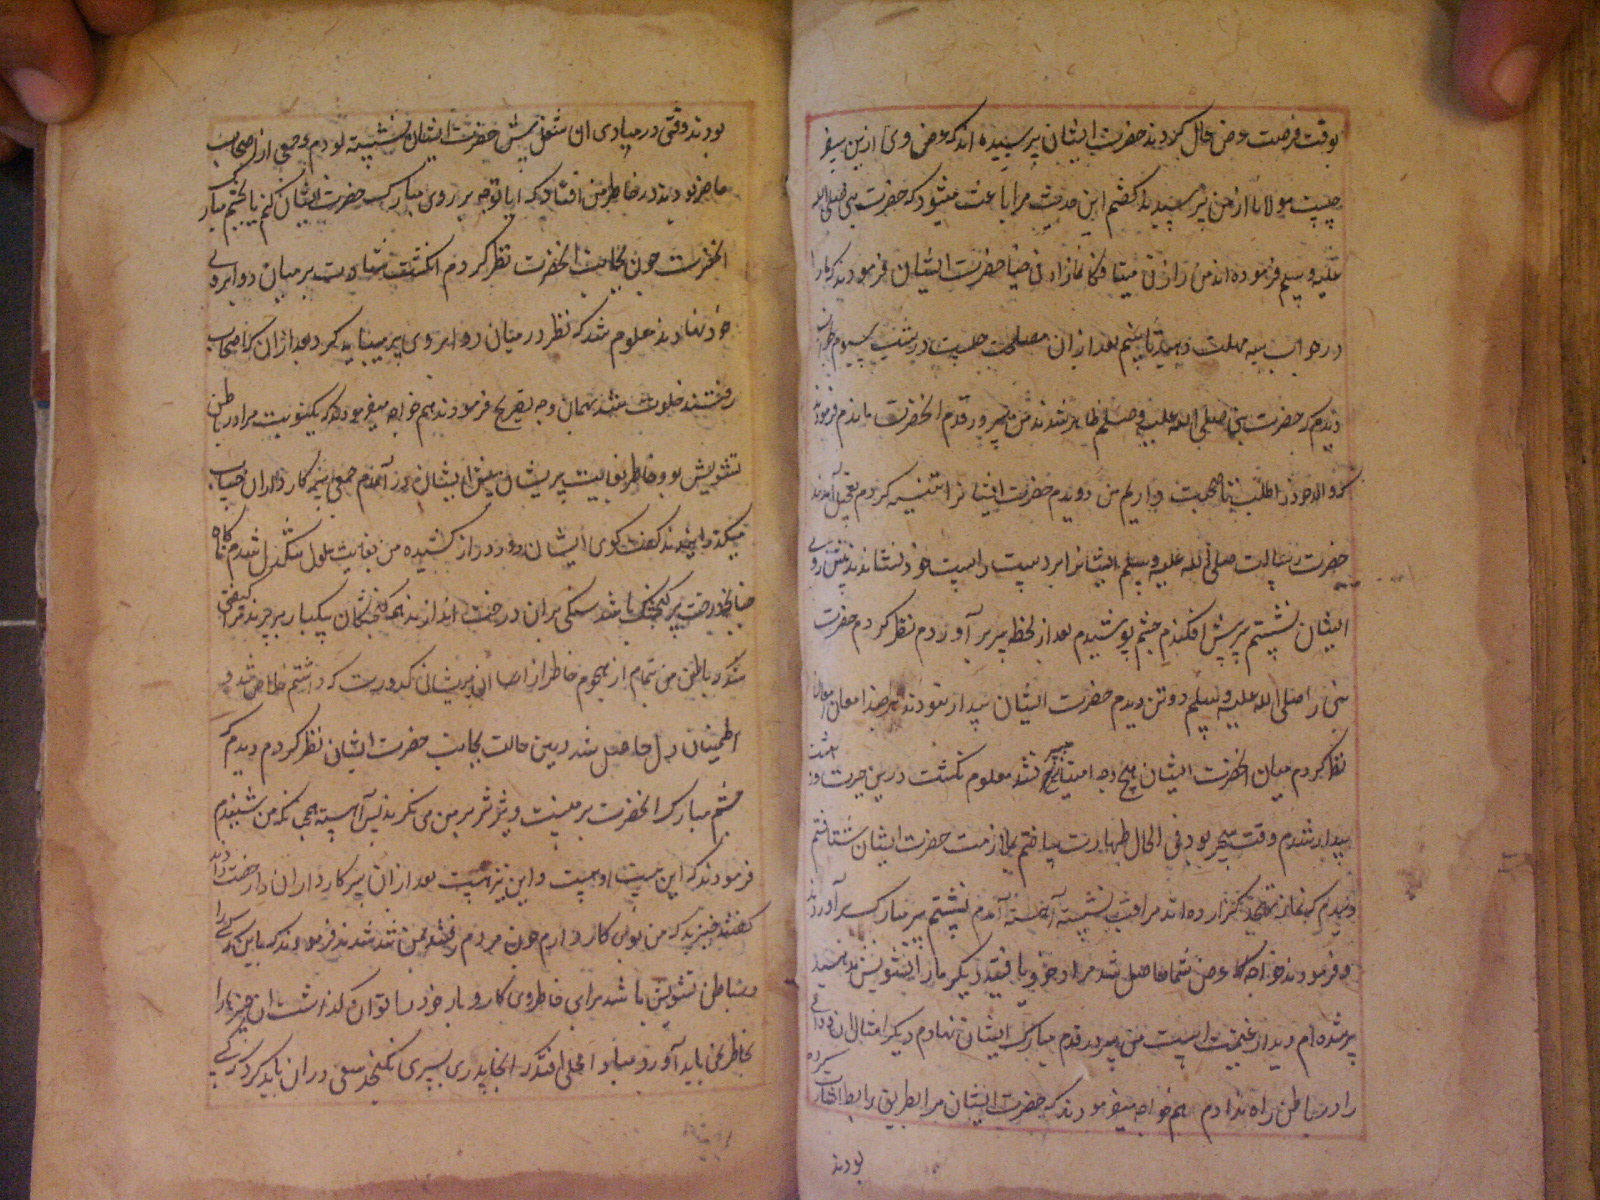 بوقت فرصت عرض حال کردند حضرت ایشان پرسیده اند که عرض وی ازین سفر
چیست مولانا از من پرسیدند گفتم این حدیث مرا باعث میشود که حضرت نبی صلی الله
علیه وسلم فرموده اند من زارنی میتا فکانما زارنی حیا حضرت ایشان فرمودند که ما را
در جواب سه مهلت دهید تا ببینم بعد ازان مصلحت چیست در شب سیوم
دیدم که حضرت نبی صلی الله علیه وسلم ظاهر شدند من سر در قدم آنحضرت ماندم فرمودند
که والد خود را طلب تا صحبت داریم من دویدم حضرت ایشانرا تنبیه کردم بتعجیل آمدند
حضرت رسالت صلی الله علیه وسلم ایشانرا بر دست راست خود نشاندند پیش روی
ایشان نشستم سر پیش افکندم چشم پوشیدم بعد از لحظه سر بر آوردم نظر کردم حضرت
نبی را صلی الله علیه وسلم دو تن دیدم حضرت ایشان پیدا نبودند هر چند امعان
نظر کردم میان آنحضرت ایشان هیچ وجه امتیاز نشد معلوم نگشت درین حیرت
بیدار شدم وقت سحر بود فی الحال طهارت ساختم بملازمت حضرت ایشان شتافتم
دیدم که نماز تهجد گزارده اند مراقب نشسته آهسته آمدم نشستم سر مبارک بر آوردند
و فرمودند خواجه کلا عرض شما حاصل شد مراد خود یافتید دیگر ما را تشویش ندهید
پیر شده ام دیدار غنیمت است من سر در قدم مبارک ایشان نهادم دیگر امثال آن
را در باطن راه ندادم هم خواجه میفرمودند که حضرت ایشان مرا بطریق رابطه
بودند
بودند وقتی در مبادی آن شغل پیش حضرت ایشان نشسته بودم و جمعی از اصحاب
حاضر بودند در خاطر من افتاد که آیا توجه بر روی مبارک حضرت ایشان کنم یا بچشم مبارک
آنحضرت چون بجانب آنحضرت نظر کردم انگشت شهادت بر میان دو ابروی
خود نهادند معلوم شد که نظر در میان دو ابروی پیر میباید کرد بعد ازان که اصحاب
رفتند خلوت شد بهمان وجه تصریح فرمودند هم خواجه میفرمودند که یکنوبت مرا در باطن
تشویش بود خاطر بغایت پریشان پیش ایشان در آمدم جمعی سرکارداران حساب
میگذرانیدند گفت و گوی ایشان دور و دراز کشیده من بغایت ملول تنگدل شدم ناگاه
چنانچه درخت پر گنجشک باشد سنگی بران درخت اندازند همه گنجشکان یکبار بر پرند
شد باطن من تمام از هجوم خاطر از پریشانی کدورت که داشتم خلاص شد و
اطمینان دل حاصل شد درین حالت بجانب حضرت ایشان نظر کردم دیدم که
چشم مبارک آنحضرت بر منست و بر من می نگرند پس آهسته که من شنیدم
فرمودند که این هست و این نیز هست بعد ازان سرکارداران را رخصت دادند
گفتند خیزید که من نوعی کار دارم چون مردم رفتند فرمودند که کسی را
در باطن تشویش باشد برای خاطر وی کار و بار خود را توان گذاشت این چیزها را
بخاطر می باید آورد افتد که آنجا پدری پسری نگنجد سعی در آن باید کرد که